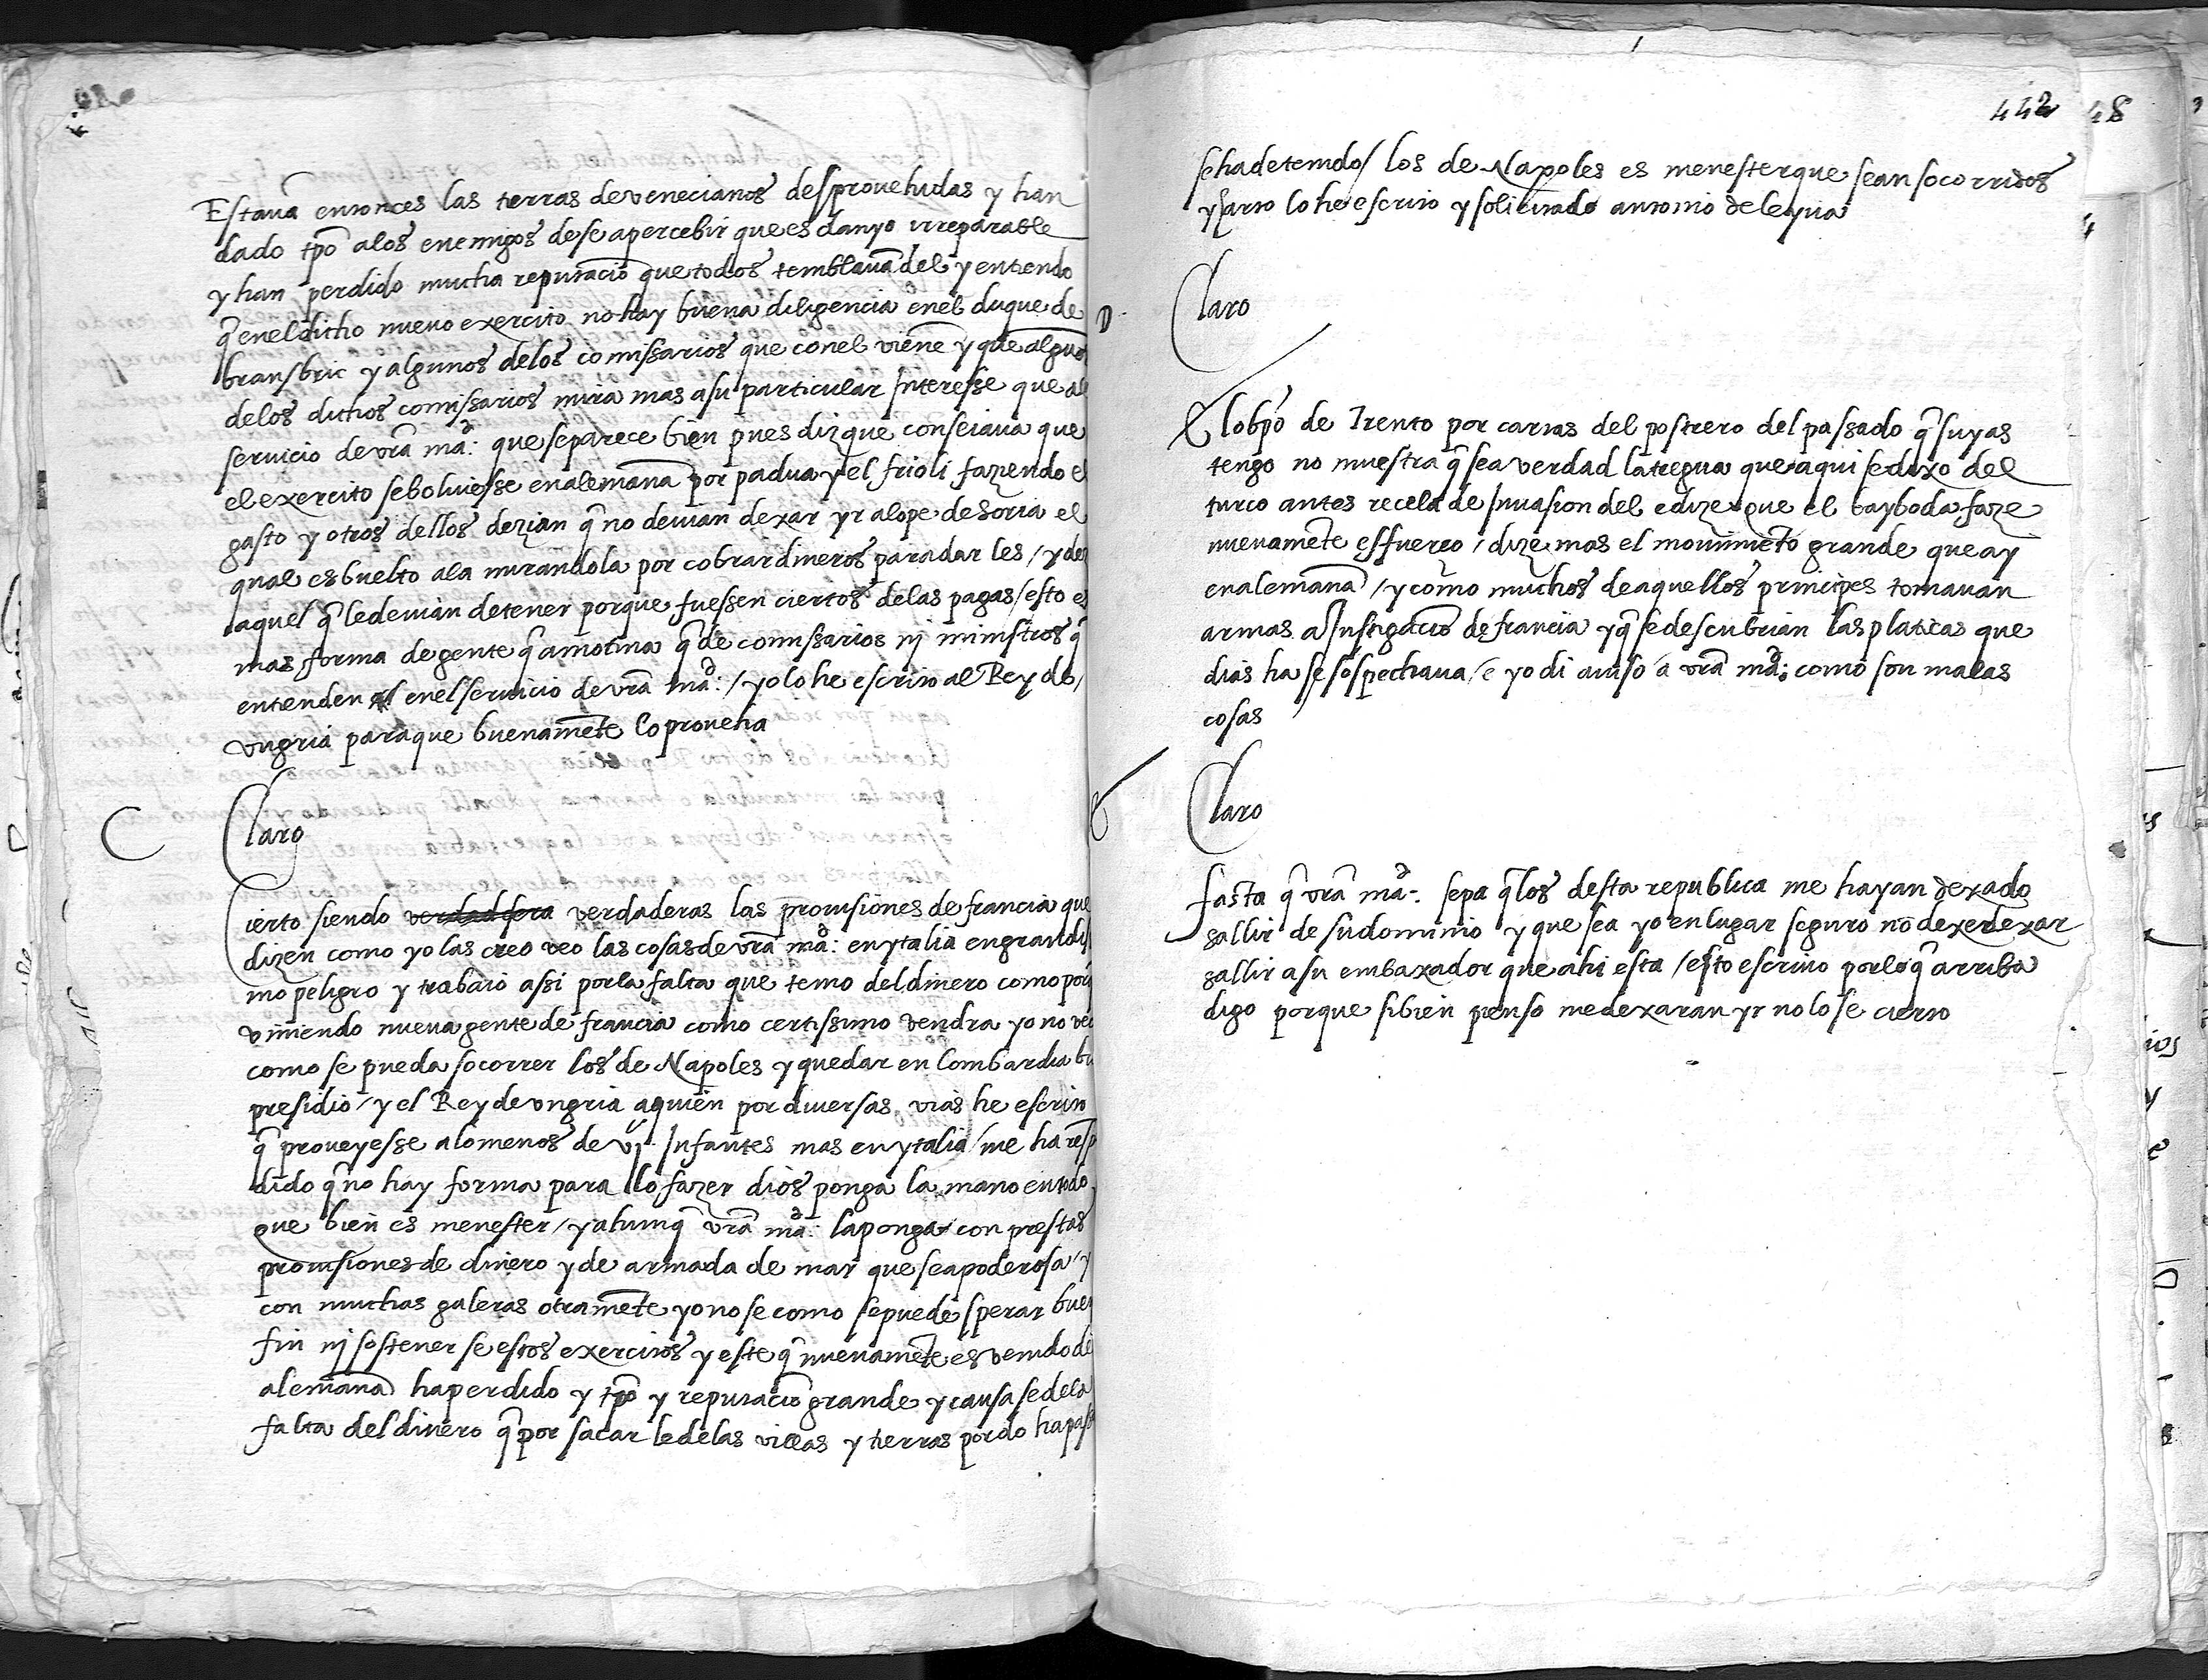 Estauā entonces las terras de venecianos desprouehidas y han
dado tpō a los enemigos de se apercebir que es danyo irreparable
y han perdido mucha reputaciō que todos temblauā del y entiendo
q̄ en el dicho nueuo exercito no hay buena diligencia en el duque de
bransbric y algunos de los comissarios que con el vienē y que algunos
de los dichos comissarios mira mas a su particular Interesse que al
seruicio de vrā mād: que se parece bien pues diz que conseiaua que
el exercito se boluiesse en alemana por padua y el frioli faziendo el
gasto y otros dellos dezian q̄ no deuian dexar yr a lope de Soria el
qual es buelto a la mirandola por cobrar dineros para dar les / y de
aquel q̄ le deuian detener porque fuessen ciertos de las pagas / esto es
mas forma de gente q̄ amotina q̄ de comissarios nj ministros q̄
entienden en el seruicio de vrā mād: / yo lo he escrito al Rey de
vngria para que buenamēte lo proueha
C Claro
Cierto siendo verdaderas las prouisiones de francia que
dizen como yo las creo veo las cosas de vrā mād: en ytalia en grandis
mo peligro y trabaio assi por la falta que temo del dinero como porq̄
viniendo nueua gente de francia como certissimo vendra yo no veo
como se pueda socorrer los de Napoles y quedar en lombardia bu
presidio / y el Rey de vngria a quien por diuersas vias he escrito
q̄ proueyesse a lo menos de vj Infantes mas en ytalia / me ha resp
dido q̄ no hay forma para lo fazer dios ponga la mano en todo
que bien es menester / y ahunq̄ vrā mād: la ponga con prestas
prouisiones de dinero y de armada de mar que sea poderosa / y
con muchas galeras otramēte yo no se como se puede sperar buen
fin nj sostener se estos exercitos y este q̄ nueuamēte es venido de
alemana ha perdido y tpō y reputaciō grande y causa se de la
falta del dinero q̄ por sacar le de las villas y tierras por do ha pass
442
se ha detenido / los de Napoles es menester que sean socorridos
y harto lo he escrito y solicitado antonio de leyua
D Claro
El obpō de Trento por cartas del postrero del passado q̄ suyas
tengo no muestra q̄ sea verdad la tregua que aqui se dixo del
turco antes recela de Inuasion del e dize que el bayboda faze
nueuamēte esfuerço / dize mas el mouimiēto grande que ay
en alemana / y como muchos de aquellos principes tomauan
armas a Instigaciō de francia y q̄ se descubrian las platicas que
dias ha se sospechaua / e yo di auiso a vrā mād: como son malas
cosas
Claro
fasta q̄ vrā mād: sepa q̄ los desta republica me hayan dexado
sallir de su dominio y que sea yo en lugar seguro no dexe dexar
sallir a su embaxador que ahi esta / esto escriuo por lo q̄ arriba
digo porque si bien pienso me dexaran yr no lo se cierto
48